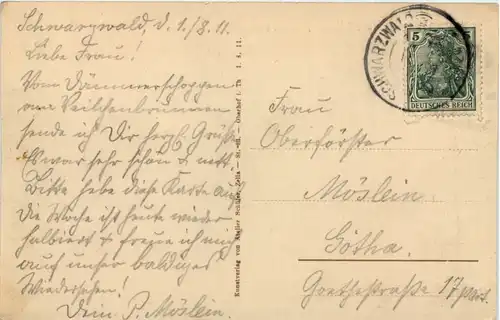 Schwarzwald, d. 1./8. 11.
Liebe Frau!
Vom Dämmerschoppen
am Veilchenbrunnen
sende ich Dir herzl. Grüße
Es war sehr schön & nett.
Bitte hebe diese Karte auf
Die Woche ist heute wieder
halbiert & freue ich mich
auf unser baldiges
Wiedersehen!
Dein P. Möslein.
Kunstverlag von Atelier Schulze, Zella - St.-Bl. - Oberhof i. Th. 1. 4. 11.
SCHWARZWALD
5
DEUTSCHES REICH
Frau
Oberförster
Möslein.
Gotha.
Goethestraße 17 part.